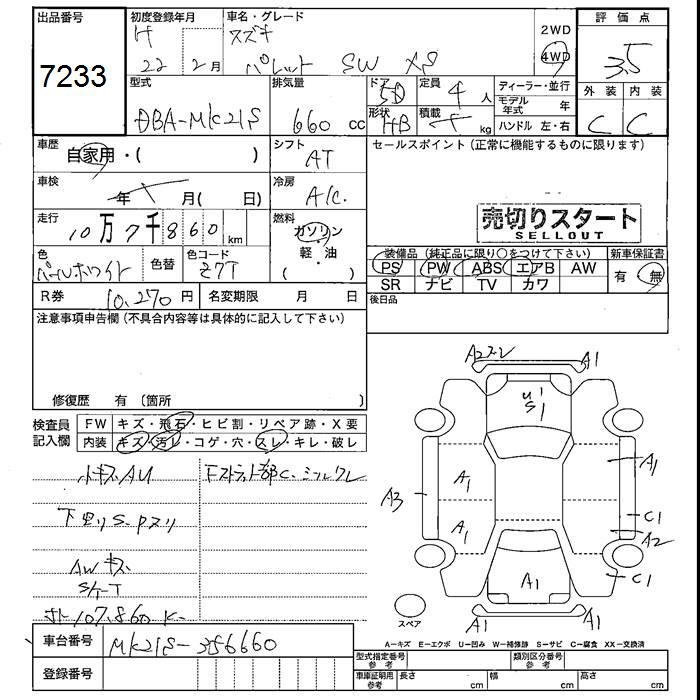 出品番号
7233
初度登録年月
H
22 2月
車名・グレード
スズキ
パレット SW XS
2WD
4WD
評価点
3.5
外装 内装
C C
型式
DBA-MK21S
排気量
660 cc
ドア
5D
形状
HB
定員
4 人
積載
kg
ディーラー・並行
モデル年式 年
ハンドル 左・右
車歴
自家用・( )
シフト
AT
セールスポイント(正常に機能するものに限ります)
車検
年 月( 日)
冷房
A/C
走行
10万7千860 km
燃料
ガソリン
・
軽・油
売切りスタート
SELLOUT
色
パールホワイト
色替
色コード
Z7T
装備品(純正品に限り○をつけて下さい)
新車保証書
PS PW ABS エアB AW
SR ナビ TV カワ
有 無
R券 10,270 円
名変期限 月 日
後日品
注意事項申告欄(不具合内容等は具体的に記入して下さい)
修復歴 有(箇所 )
検査員記入欄
FW キズ・飛石・ヒビ割・リペア跡・X要
内装 キズ・汚レ・コゲ・穴・スレ・キレ・破レ
小キズAU
下回りS
AWキズ
107,860K
車台番号
MK21S-356660
登録番号
A1
U1
S1
A1
A1
A3
A1
C1
A2
C1
A1
A1
A1
スペア
A−キズ E−エクボ U−凹み W−補修跡 S−サビ C−腐食 XX−交換済
型式指定番号 参考
類別区分番号 参考
車庫証明用 参考
長さ cm
幅 cm
高さ cm